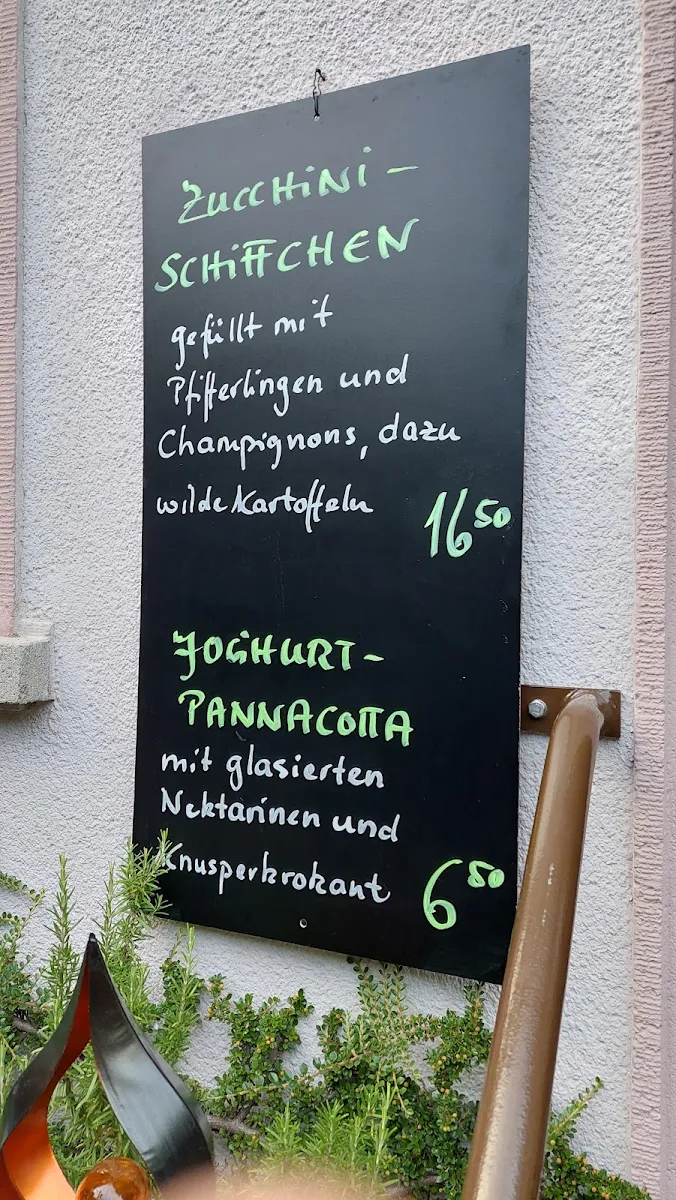 ZUCCHINI-
SCHIFFCHEN
gefüllt mit
Pfifferlingen und
Champignons, dazu
wilde Kartoffeln 16⁵⁰
JOGHURT-
PANNACOTTA
mit glasierten
Nektarinen und
Knusperkrokant 6⁵⁰